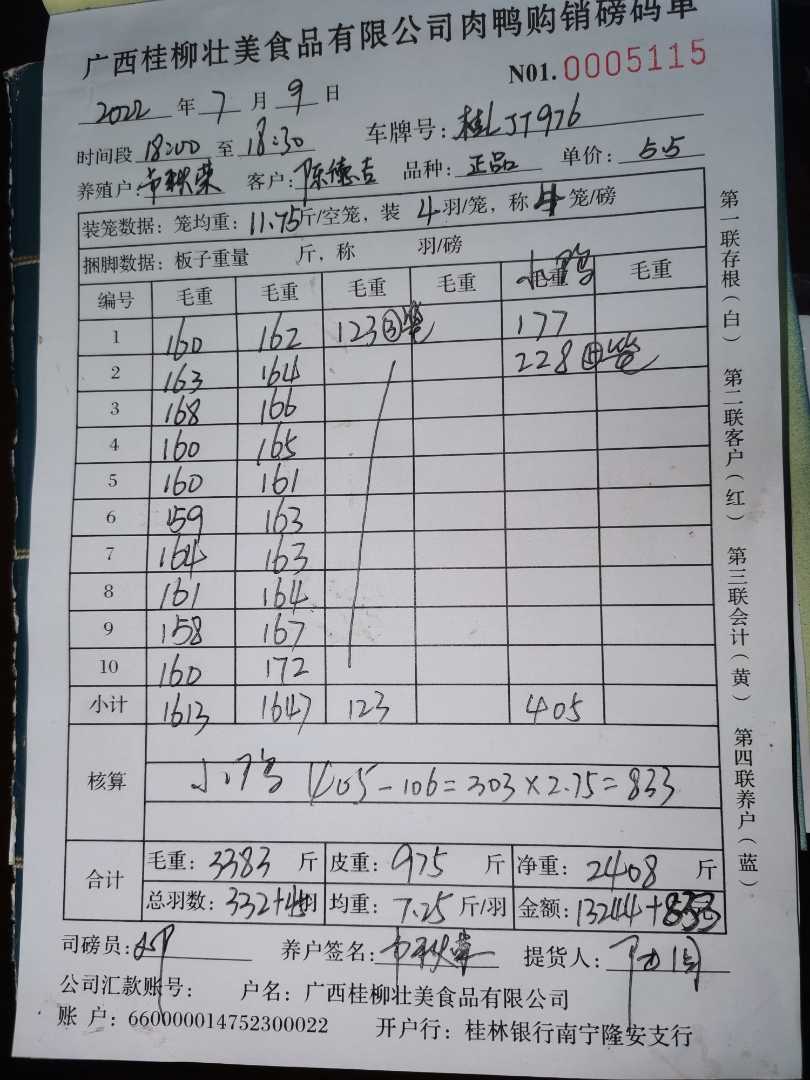 广西桂柳壮美食品有限公司肉鸭购销磅码单
N01. 0005115
2022 年 7 月 9 日
时间段 18:00 至 18:30 车牌号: 桂LJT976
养殖户: 客户: 陈德吉 品种: 正品 单价: 5.5
装笼数据: 笼均重: 11.75斤/空笼, 装 4 羽/笼, 称 4 笼/磅
捆脚数据: 板子重量 斤, 称 羽/磅
编号 毛重 毛重 毛重 毛重 毛重 毛重
小鸭
1 160 162 123③笼 177
2 163 164 228 笼
3 168 166
4 160 165
5 160 161
6 159 163
7 164 163
8 161 164
9 158 167
10 160 172
小计 1613 1647 123 405
核算 小鸭 405-106=303×2.75=833
合计 毛重: 3383 斤 皮重: 975 斤 净重: 2408 斤
总羽数: 332+45羽 均重: 7.25 斤/羽 金额: 13244+833
司磅员: 养户签名: 提货人:
公司汇款账号: 户名: 广西桂柳壮美食品有限公司
账 户: 660000014752300022 开户行: 桂林银行南宁隆安支行
第一联存根(白) 第二联客户(红) 第三联会计(黄) 第四联养户(蓝)